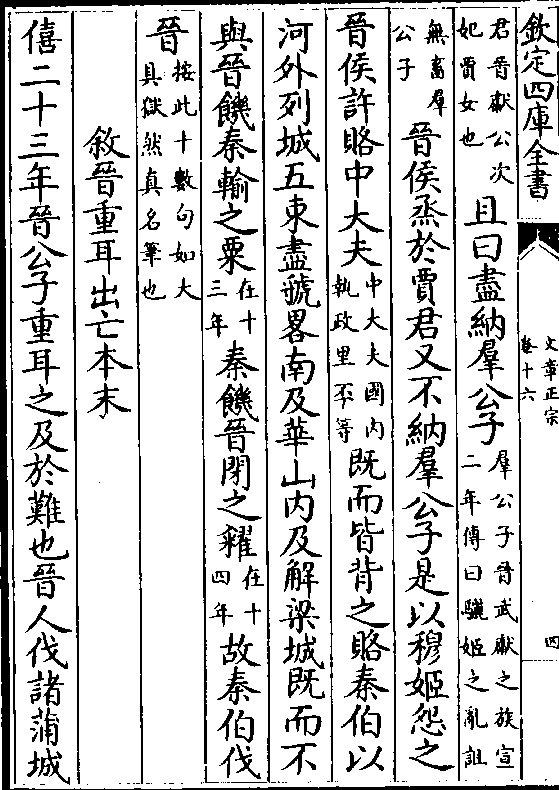 欽定四庫全書
文章正宗
卷十六
四
君晉獻公次
妃賈女也
且曰盡納羣公子
羣公子晉武獻之族宣
二年傳曰驪姬之亂詛
無畜羣
公子
晉侯烝於賈君又不納羣公子是以穆姬怨之
晉侯許賂中大夫
中大夫國内
執政里丕等
既而皆背之賂秦伯以
河外列城五東盡虢畧南及華山内及解梁城既而不
與晉饑秦輸之粟
在十
三年
秦饑晉閉之糴
在十
四年
故秦伯伐
晉
按此十數句如大
具獄然真名筆也
敘晉重耳出亡本末
僖二十三年晉公子重耳之及於難也晉人伐諸蒲城